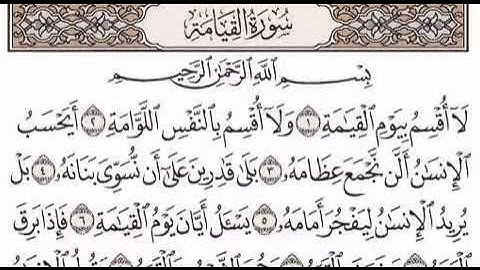 سُورَةُ الْقِيَامَةِ
بِسْمِ اللَّهِ الرَّحْمَٰنِ الرَّحِيمِ
لَآ أُقْسِمُ بِيَوْمِ ٱلْقِيَٰمَةِ ١ وَلَآ أُقْسِمُ بِٱلنَّفْسِ ٱللَّوَّامَةِ ٢ أَيَحْسَبُ
ٱلْإِنسَٰنُ أَلَّن نَّجْمَعَ عِظَامَهُۥ ٣ بَلَىٰ قَٰدِرِينَ عَلَىٰٓ أَن نُّسَوِّىَ بَنَانَهُۥ ٤ بَلْ
يُرِيدُ ٱلْإِنسَٰنُ لِيَفْجُرَ أَمَامَهُۥ ٥ يَسْـَٔلُ أَيَّانَ يَوْمُ ٱلْقِيَٰمَةِ ٦ فَإِذَا بَرِقَ